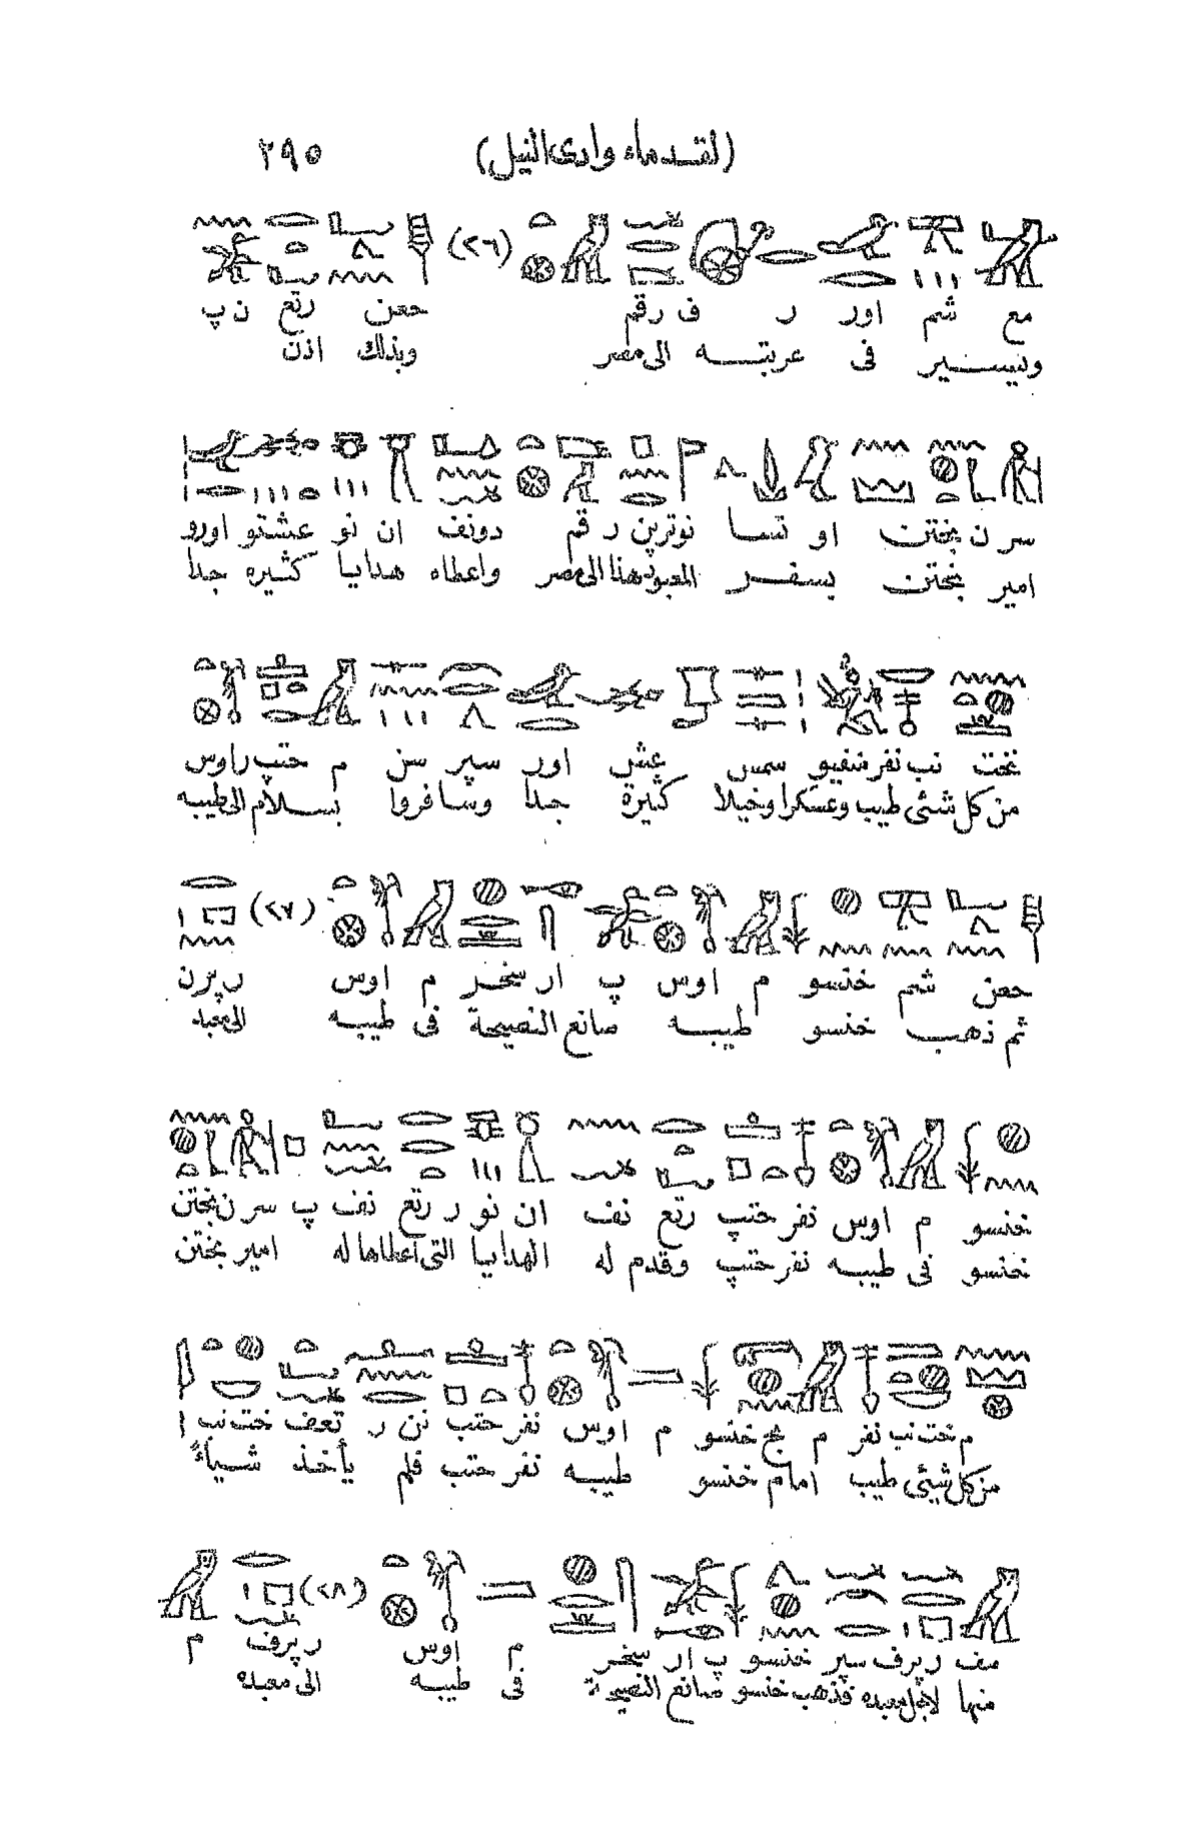 (لقدماء وادى النيل) ٢٩٥
(٢٦)
مع شم اور ر ف رقم حعن رتع ن پ
ويسير فى عربته الى مصر وبذلك اذن
سر ن بختن او تسا نوترپن ر قم دونف ان نو عشتو اورو
امير بختن بسفر المعبود هنا الى مصر واعطاه هدايا كثيره جدا
نخت نب نفر منفيو سمس عش اور سپر سن م حتپ راوس
من كل شئ طيب وعسكرا وخيلا كثيرة جدا وسافروا بسلام الى طيبه
(٢٧)
حعن شم خنسو م اوس پ ار سخر م اوس ر پرن
ثم ذهب خنسو طيبه صانع النصيحة فى طيبه الى معبد
خنسو م اوس نفر حتپ رتع نف ان نو ر رتع نف پ سر ن بختن
خنسو فى طيبه نفر حتپ وقدم له الهدايا التى اعطاها له امير بختن
م خت نب نفر م بح خنسو م اوس نفر حتب نن ر تعف خت نب ا
من كل شيئ طيب امام خنسو طيبه نفر حتب فلم يأخذ شياءً
(٢٨)
مف ر پرف سپر خنسو پ ار سخر م اوس ر پرف م
منها لاجل معبده فذهب خنسو صانع النصيحة فى طيبه الى معبده